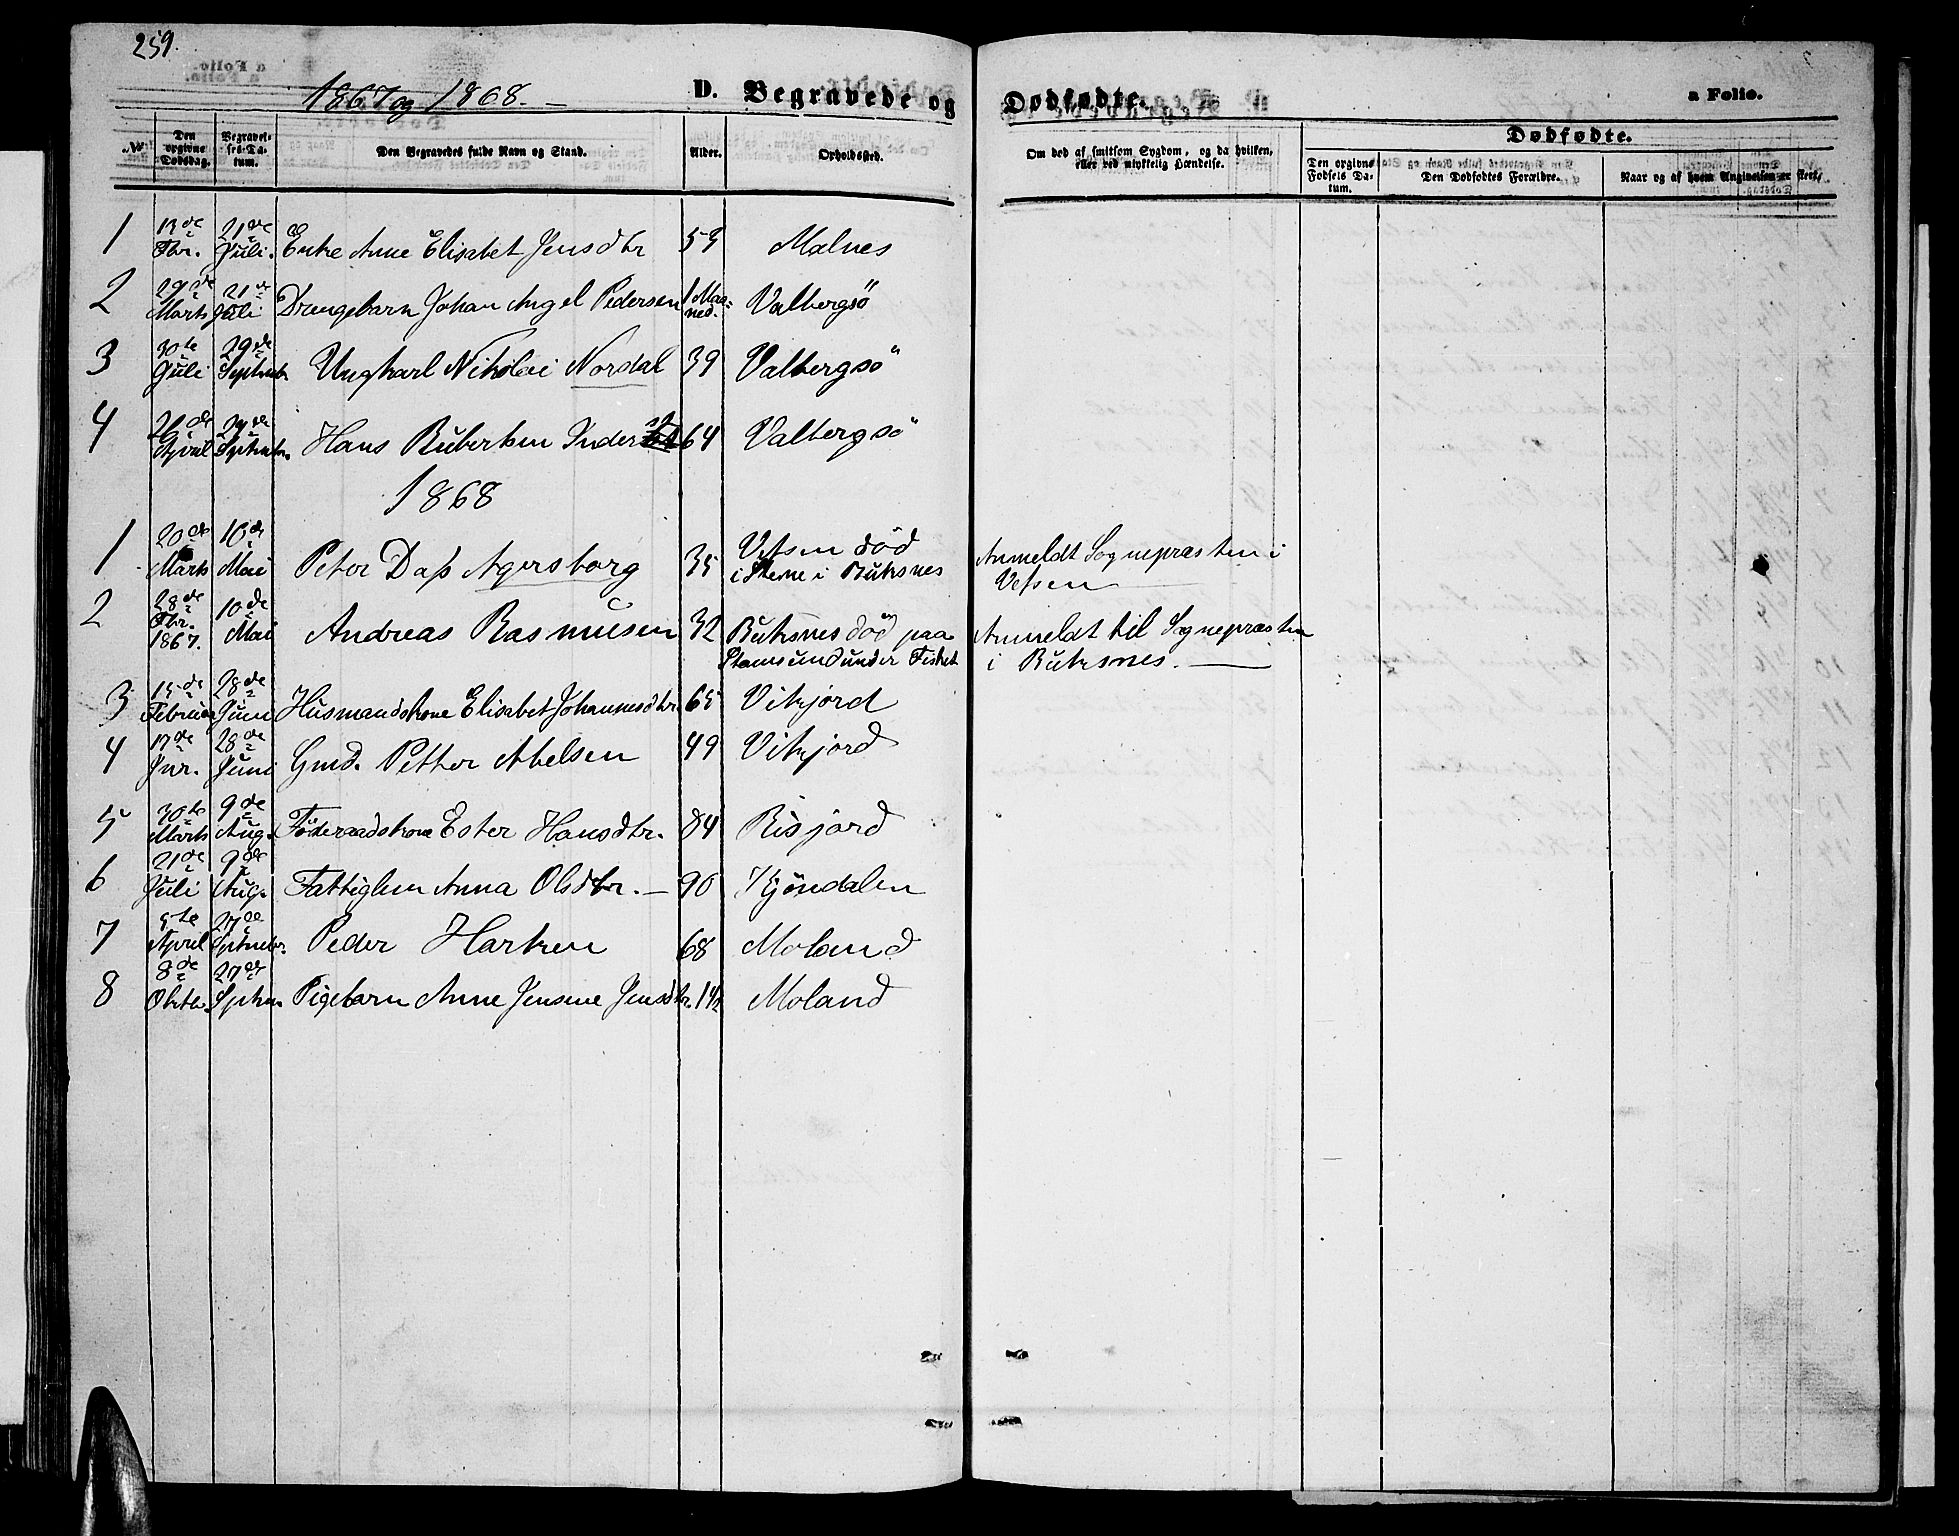 259.
1867 og 1868. —
D. Begravede og Dødfødte.
a Folio.
Dødfødte.
№
Den opgivne Dødsdag.
Begravelses-Datum.
Den Begravedes fulde Navn og Stand.
Alder.
Opholdsted.
Om død af smitsom Sygdom, og da hvilken, eller ved ulykkelig Hændelse.
Den opgivne Fødsels Datum.
Den Dødfødtes Forældre.
Naar og af hvem Angivelsen er skeet.
1 13de Fbr. 21de Juli. Enke Anne Elisabet Jensdtr 53 Malnes
2 29de Marts 21de Juli Drengebarn Johan Angel Pedersen 1 Maaned. Valbergsö
3 30te Juli 29de Septembr Ungkarl Nikolai Nordal 39 Valbergsö
4 April 29de Septembr. Hans 64 Valbergsö
1868
1 20de Marts 10de Mai Peter Dass Agersborg 35 Vefsen död i Stene i Buksnes Anmeldt Sognepræsten i Vefsen
2 28de Fbr. 1867. 10de Mai Andreas Rasmusen 32 Buksnes död paa Stamsund under Fisket Anmeldt til Sognepræsten i Buksnes. —
3 15de Februar 28de Juni Husmandskone Elisabet Johannesdtr. 65 Vikjord
4 17de Jnr. 28de Juni Gmd. Petter Abelsen 49 Vikjord
5 30te Marts 9de Aug. Föderaadskone Ester Hansdtr. 84 Risjord
6 21de Juli 9de Aug. Fattiglem Anna Olsdtr. — 90 Kjöndalen
7 5te April 27de Septembr. Peder 68 Moland
8 8de Oktbr. 27de Septem. Pigebarn Anne Jensine Jensdtr. Moland